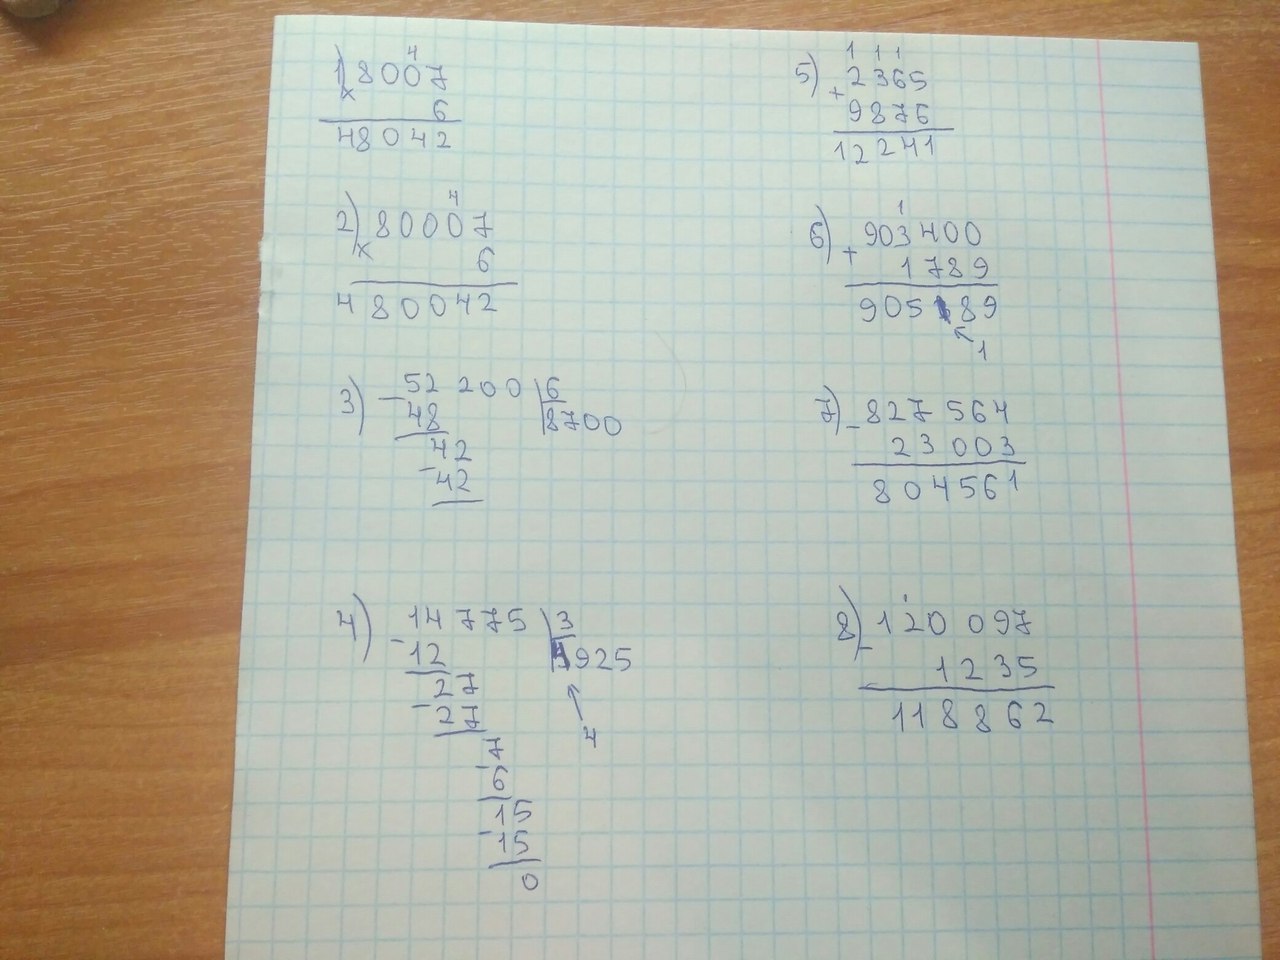 4
1) 8007
x 6
48042
4
2) 80007
x 6
480042
3) - 52 200 | 6
48 | 8700
42
- 42
4) - 14 775 | 3
12 | 4925
27
- 27
4
7
- 6
15
- 15
0
1 1 1
5) 2365
+ 9876
12241
1
6) 903 400
+ 1 789
905 189
1
7) - 827 564
23 003
804561
8) - 120 097
1235
118862